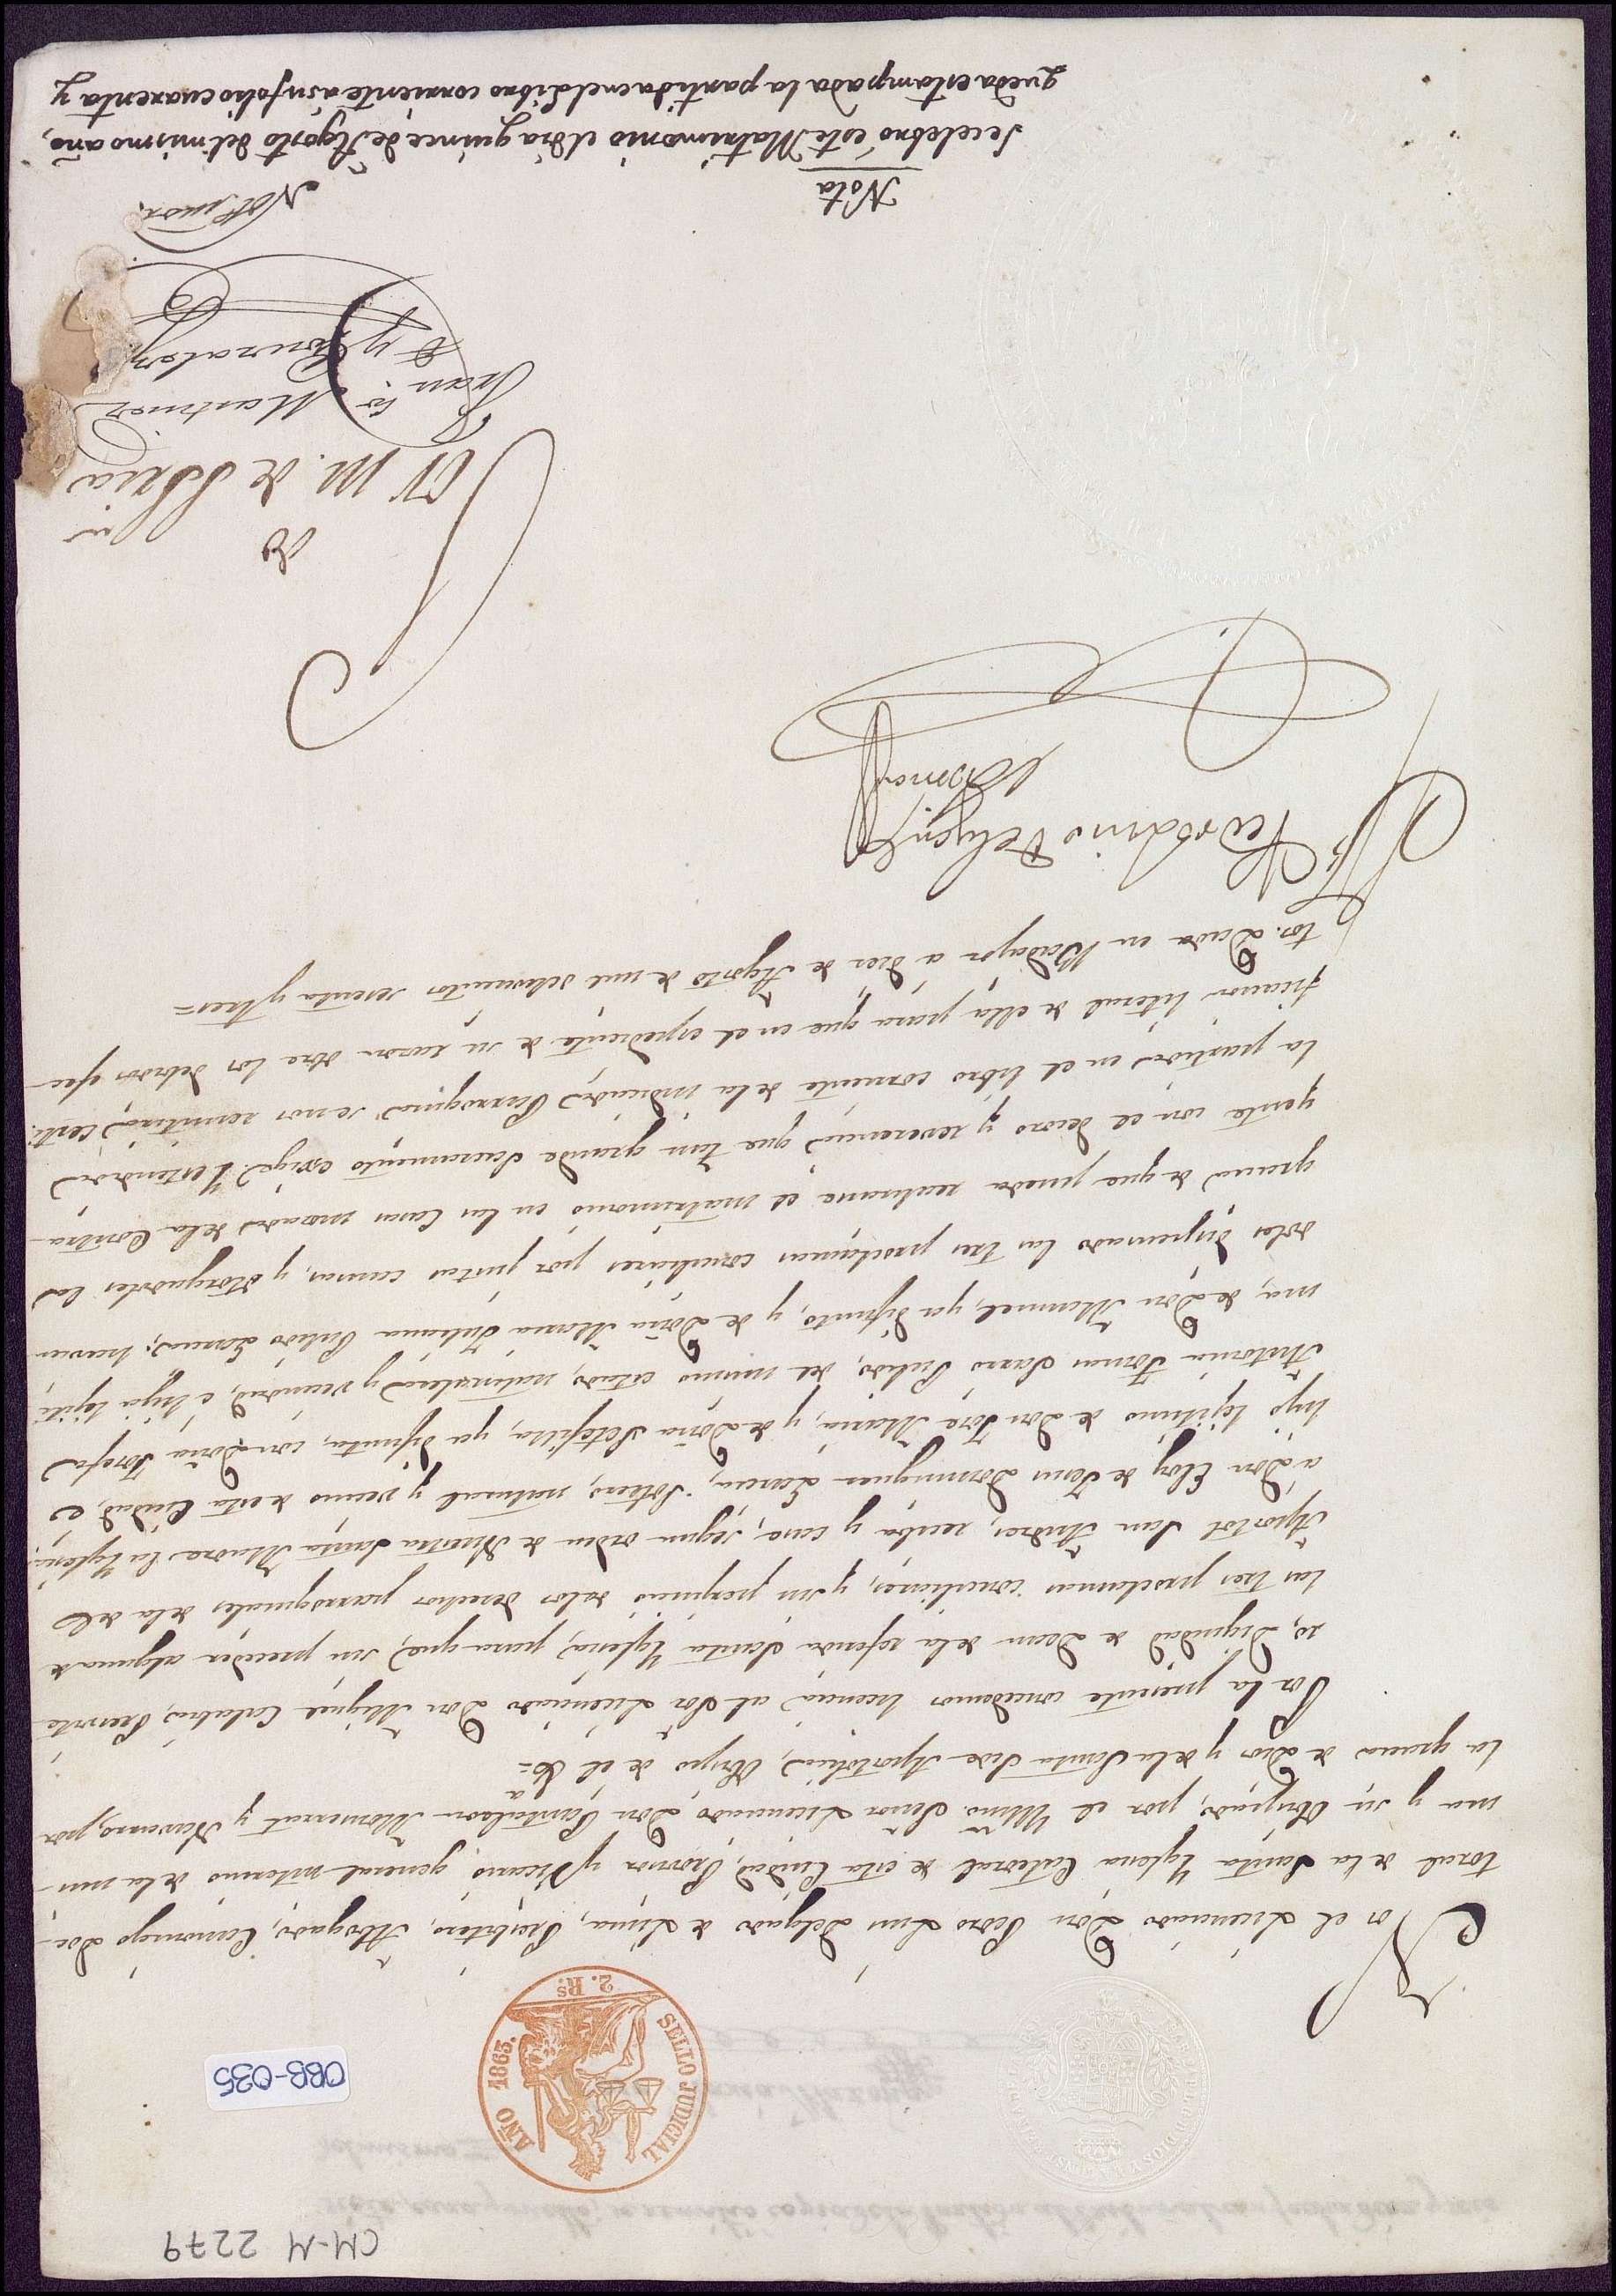 CM-M 2279
OBB-035
SELLO JUDICIAL
AÑO 1863.
2. Rs.
Nos el Licenciado Don Pedro Luis Delgado de Luna, Presbítero, Abogado, Canónigo Doc-
toral de la Santa Yglesia Catedral de esta Ciudad, Provisor y Vicario general interino de la mis-
ma y su Obispado, por el Ylltmo. Señor Licenciado Don Pantaleon Monserrat y Navarro, por
la gracia de Dios y de la Santa Sede Apostólica, Obispo de el &a=
Por la presente concedemos licencia al Sor Licenciado Don Miguel Calabia, Presvíte-
ro, Dignidad de Dean de la referida Santa Yglesia, para que, sin preceder alguna de
las tres proclamas conciliares, y sin perjuicio de los derechos parroquiales de la del
Apóstol San Andres, reciba y case, segun orden de Nuestra Santa Madre la Yglesia,
a Don Eloy de Jesus Dominguez Garcia, Soltero, natural y vecino de esta Ciudad, e
hijo legitimo de Don José Maria, y de Doña Setefilla, ya difunta, con Doña Josefa
Antonia Tomas Saaro Pulido, del mismo estado, naturaleza y vecindad, é hija legíti-
ma, de Don Manuel, ya difunto, y de Doña Maria Juliana Pulido Garcia; havien-
doles dispensado las tres proclamas conciliares por justas causas, y otorgadoles la
gracia de que pueda realizarse el matrimonio en las Casas morada de la Contra-
yente con el decoro y reverencia que tan grande Sacramento exije. Y estendida
la partida en el libro corriente de la indicada Parroquia se nos remitirá Certi-
ficacion literal de ella para que en el espediente de su razon obre los debidos efec-
tos. Dada en Badajoz a diez de Agosto de mil ochocientos sesenta y tres=
de
S M. de Sria
Fran.co Martinez
y
Not. mor.
Nota
Se celebró este Matrimonio el dia quince de Agosto del mismo año,
queda estampada la partida en el Libro corriente á su folio cuarenta y